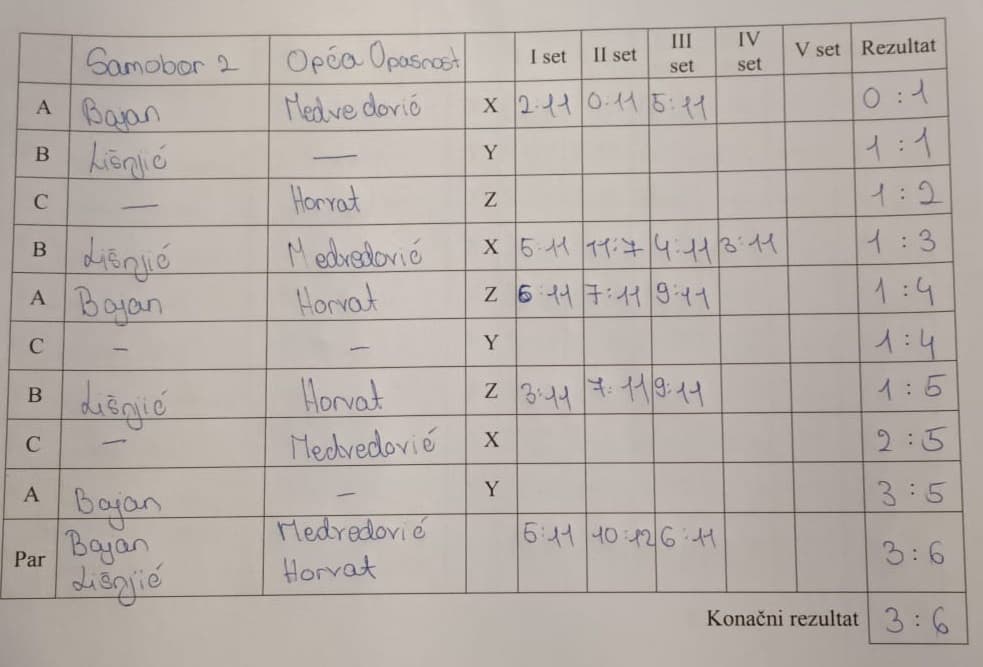 Samobor 2 Opća Opasnost I set II set III set IV set V set Rezultat
A Bajan Medvedović X 2:11 0:11 5:11 0:1
B Lišnjić — Y 1:1
C — Horvat Z 1:2
B Lišnjić Medvedović X 5:11 11:7 4:11 3:11 1:3
A Bajan Horvat Z 6:11 7:11 9:11 1:4
C — — Y 1:4
B Lišnjić Horvat Z 3:11 7:11 9:11 1:5
C — Medvedović X 2:5
A Bajan — Y 3:5
Par Bajan Medvedović 5:11 10:12 6:11 3:6
Lišnjić Horvat
Konačni rezultat 3:6